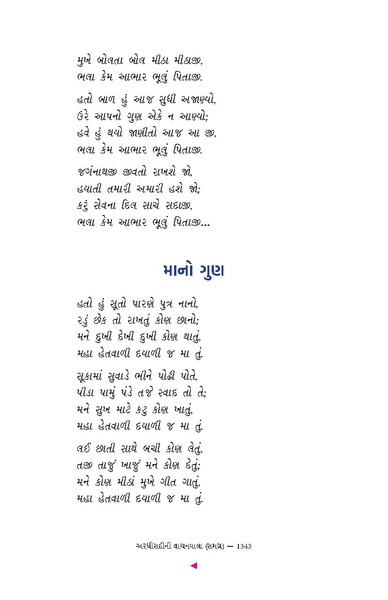 મુખે બોલતા બોલ મીઠા મીઠાજી.
ભલા કેમ આભાર ભૂલું પિતાજી.
હતો બાળ હું આજ સુધી અજાણ્યો,
ઉરે આપનો ગુણ એકે ન આણ્યો;
હવે હું થયો જાણીતો આજ આ જી,
ભલા કેમ આભાર ભૂલું પિતાજી.
જગંનાથજી જીવતો રાખશે જો,
હયાતી તમારી અમારી હશે જો;
કરું સેવના દિલ સાચે સદાજી,
ભલા કેમ આભાર ભૂલું પિતાજી...
માનો ગુણ
હતો હું સૂતો પારણે પુત્ર નાનો,
રડું છેક તો રાખતું કોણ છાનો;
મને દુખી દેખી દુખી કોણ થાતું,
મહા હેતવાળી દયાળી જ મા તું.
સૂકામાં સુવાડે ભીને પોઢી પોતે,
પીડા પામું પંડે તજે સ્વાદ તો તે;
મને સુખ માટે કટુ કોણ ખાતું,
મહા હેતવાળી દયાળી જ મા તું.
લઈ છાતી સાથે બચી કોણ લેતું,
તજી તાજું ખાજું મને કોણ દેતું;
મને કોણ મીઠાં મુખે ગીત ગાતું,
મહા હેતવાળી દયાળી જ મા તું.
અરધીસદીની વાચનયાત્રા (સમગ્ર) — 1343